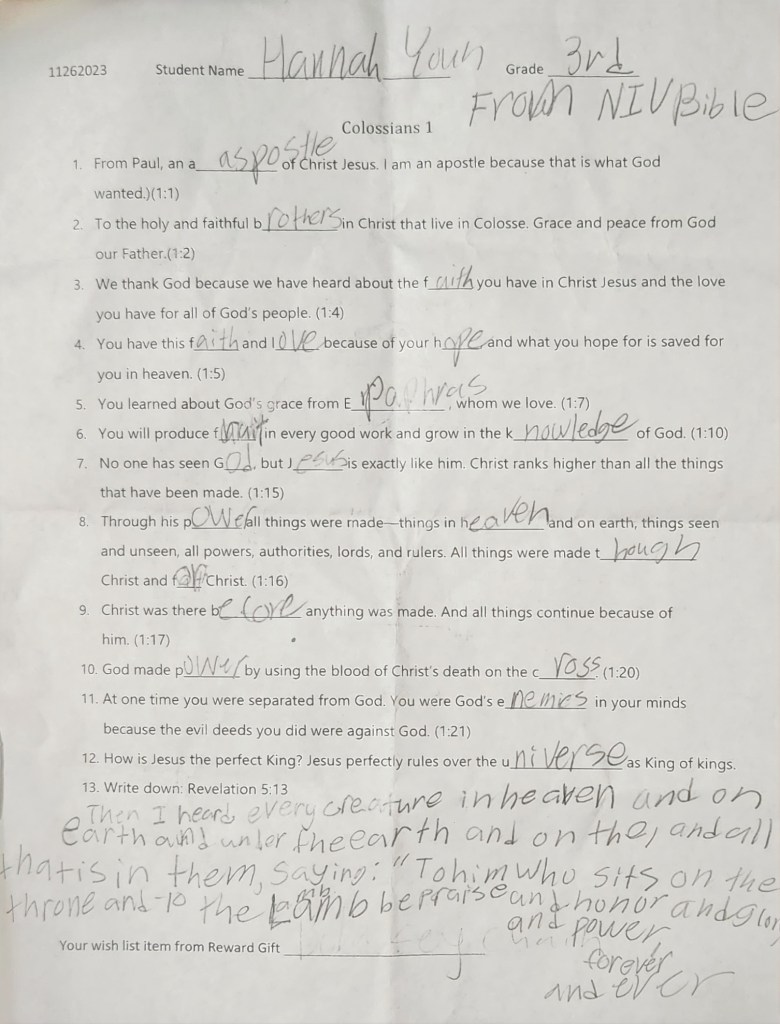 11262023 Student Name Hannah Youn Grade 3rd
From NIV Bible
Colossians 1
1. From Paul, an aaspostle of Christ Jesus. I am an apostle because that is what God
wanted.)(1:1)
2. To the holy and faithful brothers in Christ that live in Colosse. Grace and peace from God
our Father.(1:2)
3. We thank God because we have heard about the faith you have in Christ Jesus and the love
you have for all of God's people. (1:4)
4. You have this faith and love because of your hope and what you hope for is saved for
you in heaven. (1:5)
5. You learned about God's grace from Epaphras, whom we love. (1:7)
6. You will produce fruit in every good work and grow in the knowledge of God. (1:10)
7. No one has seen God, but Jesus is exactly like him. Christ ranks higher than all the things
that have been made. (1:15)
8. Through his power all things were made—things in heaven and on earth, things seen
and unseen, all powers, authorities, lords, and rulers. All things were made though
Christ and for Christ. (1:16)
9. Christ was there before anything was made. And all things continue because of
him. (1:17)
10. God made power by using the blood of Christ's death on the cross. (1:20)
11. At one time you were separated from God. You were God's enemies in your minds
because the evil deeds you did were against God. (1:21)
12. How is Jesus the perfect King? Jesus perfectly rules over the universe as King of kings.
13. Write down: Revelation 5:13
Then I heard every creature in heaven and on
earth and under the earth and on the, and all
that is in them, saying: "To him who sits on the
throne and to the Lamb be praise and honor and glory
and power,
forever
and ever
Your wish list item from Reward Gift